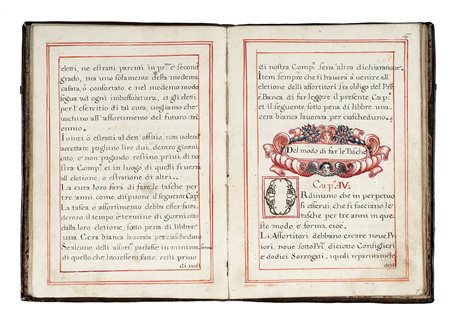 eletti, ne estratti parenti in pr.º e secondo
grado, ma uno solamente della medema
casata, ò consorto, e nel medemo modo
segua ad ogni imbossolatura, et gli eletti
per l'esercitio di tal cura, uoglíamo che
uachino all'assortimento del futuro tri
ennio.
I uinti ò estratti al dett' offitio non uolend'
accettare paghino lire dui, dentro giorni
otto, e non pagando restino priui di no
stra Comp.ª et in luogo di questi si uerrà
all'elettione, o estratione di altri.
La cura loro sarà di fare le tasche per
tre anni come dispone il seguente Cap.º
La tasca o assortimento debba esser fatta
dentro il termine di giorni otto
dalla loro elettione, sotto pena di libre
una Cera bianca lauorata per ciascheduno
Se alcuno delli assort. parlasse in minima
di quello che hauessero fatto resti priuo
di nost
di nostra Comp.ª senz' altra dichiaratione.
Item sempre che si hauerà à uenire all'
elettione delli assortitori sia obligo del Pr.e
e Banca di far leggere il presente Cap.º
et il seguente sotto pena di libre una
cera bianca lauorata per ciascheduno.
Del modo di far le Tasche
Cap.º IV.
Ordiniamo che in perpetuo
si osserui, che si facciano le
tasche per tre anni in que
sto modo e forma cioe.
Li Assortitori debbano creare noue P
riori, noue sotto Pr.i diciotto Consiglieri
e dodici Sorrogati, i quali repartitamẽte